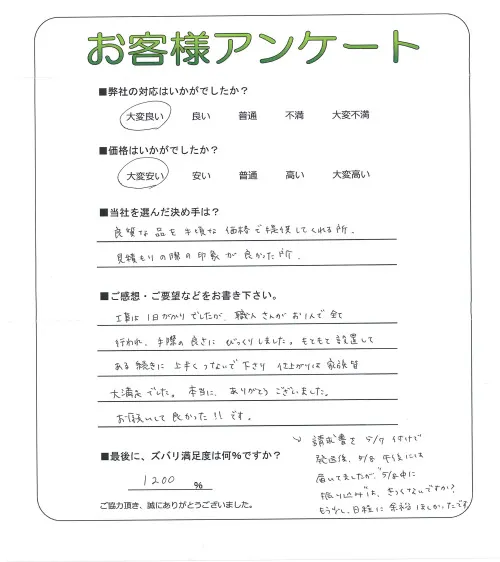 お客様アンケート
■弊社の対応はいかがでしたか？
大変良い 良い 普通 不満 大変不満
■価格はいかがでしたか？
大変安い 安い 普通 高い 大変高い
■当社を選んだ決め手は？
良質な品を手頃な価格で提供してくれる所．
見積もりの際の印象が良かった所．
■ご感想・ご要望などをお書き下さい。
工事は1日がかりでしたが、職人さんがお1人で全て
行われ、手際の良さにびっくりしました。もともと設置して
ある続きに上手くつないで下さり仕上がりは家族皆
大満足でした。本当に、ありがとうございました。
お願いして良かった!!です。
■最後に、ズバリ満足度は何％ですか？
1200 ％
ご協力頂き、誠にありがとうございました。
↘ 請求書を5/7付けで
発送後、5/8午後には
届いてましたが、5/8中に
振り込みは、きつくないですか？
もう少し、日程に余裕ほしかったです